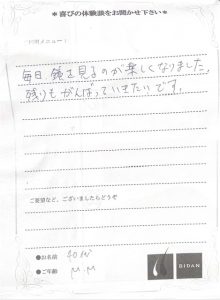 ＊喜びの体験談をお聞かせ下さい＊
ご利用メニュー：
毎日鏡を見るのが楽しくなりました。
残りもがんばっていきたいです。
ご要望など、ございましたらどうぞ
●お名前 40才
●ご年齢 M.M
BIDAN